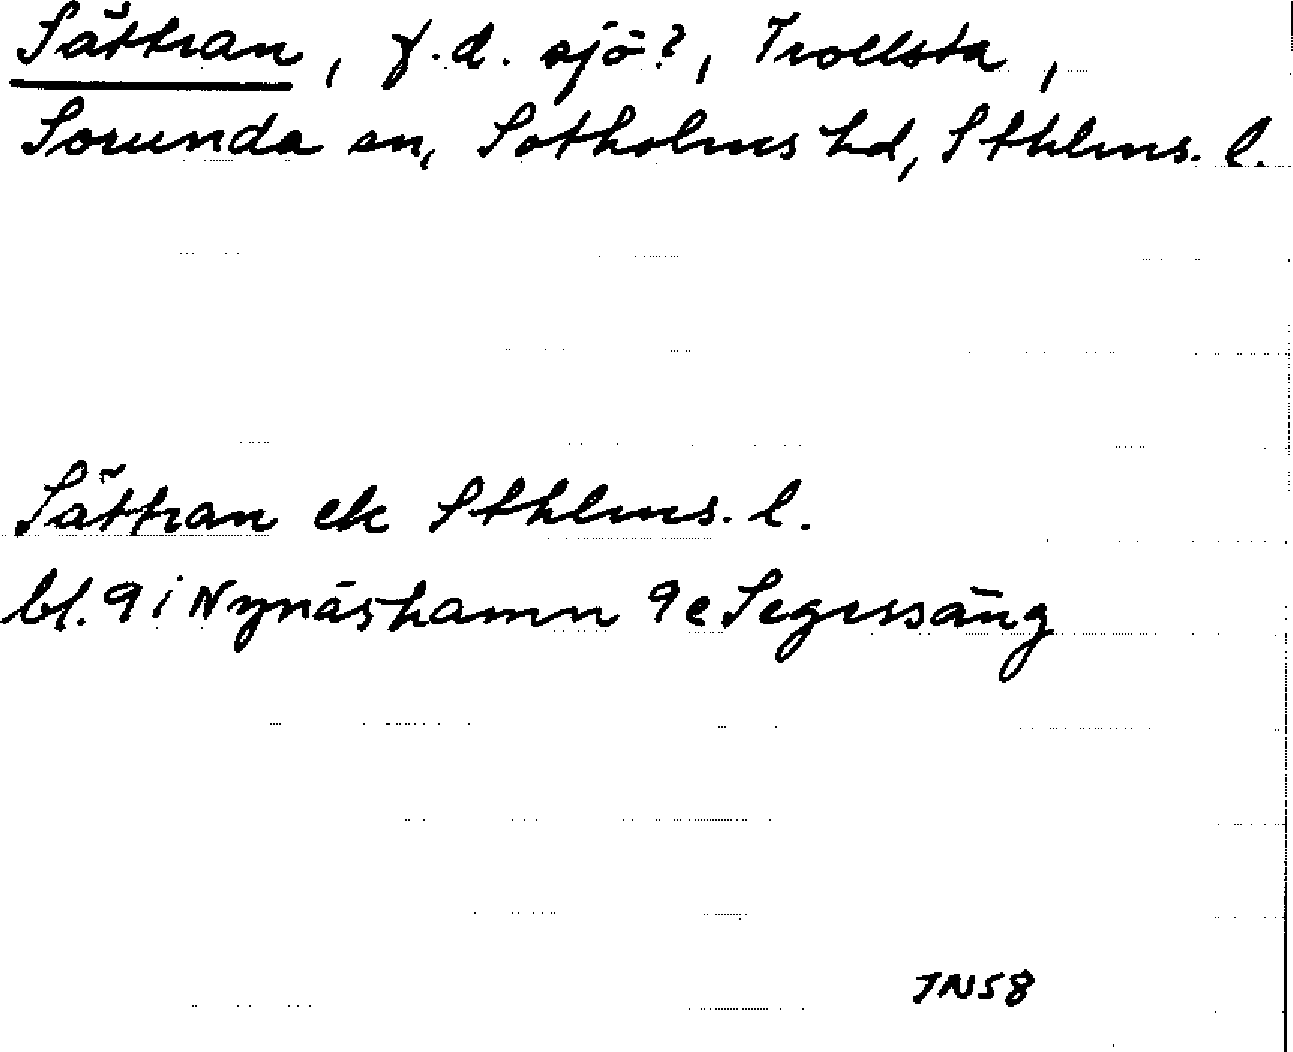 Sättran, f.d. sjö?, Trollsta,
Sorunda sn, Sotholms hd, Sthlms. l.
Sättran ek Sthlms. l.
bl. 9 i Nynäshamn 9e Segersäng
JN58